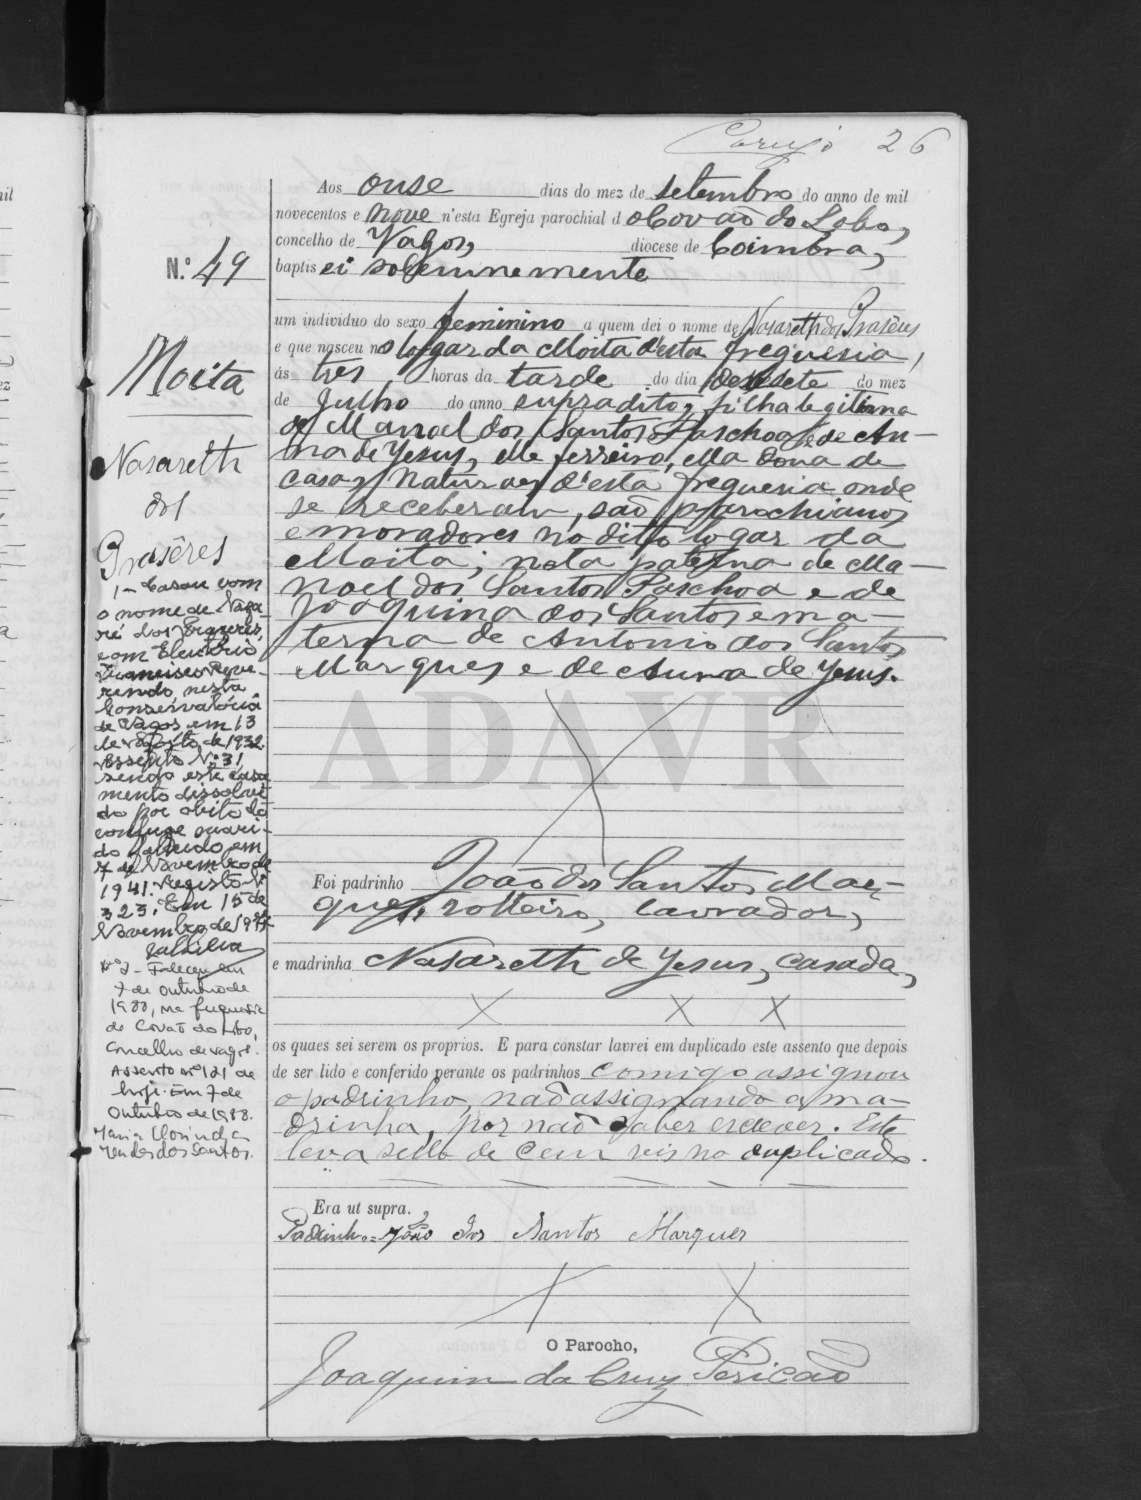 26
Aos onse dias do mez de setembro do anno de mil
novecentos e nove n'esta Egreja parochial d o Covão do Lobo,
concelho de Vagos, diocese de Coimbra,
N.º 49
baptisei solemnemente
um individuo do sexo feminino a quem dei o nome de Nasareth dos Prasêres
e que nasceu no logar da Moita d'esta freguesia,
ás tres horas da tarde do dia desesete do mez
de Julho do anno supradito, filha legitima
de Manoel dos Santos Paschoa e de An-
na de Jesus, elle ferreiro, ella dona de
casa, naturaes d'esta freguesia onde
se receberam, são parochianos
e moradores no dito logar da
Moita; neta paterna de Ma-
noel dos Santos Paschoa e de
Joaquina dos Santos e ma-
terna de Antonio dos Santos
Marques e de Anna de Jesus.
Moita
Nasareth
dos
Prasêres
1 - Casou com
o nome de Naza-
ré dos Prazeres,
com Eleutério
Francisco Reve-
rendo, nesta
Conservatória
de Vagos em 13
de Agosto de 1932.
Assento Nº 31,
sendo este casa
mento dissolvi
do por obito do
conjuge mari-
do falecido em
7 de Novembro de
1941. Registo Nº
323. Em 15 de
Novembro de
Nº 2 - Faleceu em
7 de Outubro de
1988, na freguesia
de Covão do Lobo,
Concelho de Vagos.
Assento nº 121 de
hoje. Em 7 de
Outubro de 1988.
Maria Clorinda
Mendes dos Santos.
ADAVR
Foi padrinho João dos Santos Mar-
ques, solteiro, lavrador,
e madrinha Nasareth de Jesus, casada,
os quaes sei serem os proprios. E para constar lavrei em duplicado este assento que depois
de ser lido e conferido perante os padrinhos comigo assignou
o padrinho, não assignando a ma-
drinha, por não saber escrever. Este
leva sello de cem reis no duplicado.
Era ut supra.
Padrinho = João dos Santos Marques
O Parocho,
Joaquim da Cruz Pericão